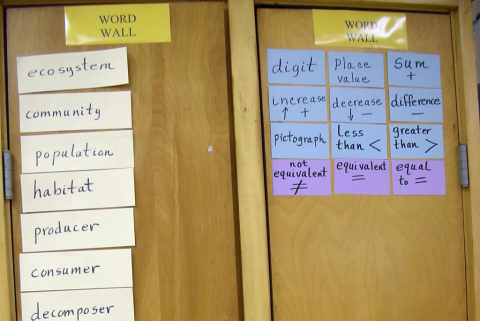 WORD
WALL
ecosystem
community
population
habitat
producer
consumer
decomposer
WORD
WALL
digit
Place
value
Sum
+
increase
↑ +
decrease
↓ −
difference
−
pictograph
Less
than <
greater
than >
not
equivalent
≠
equivalent
=
equal
to =